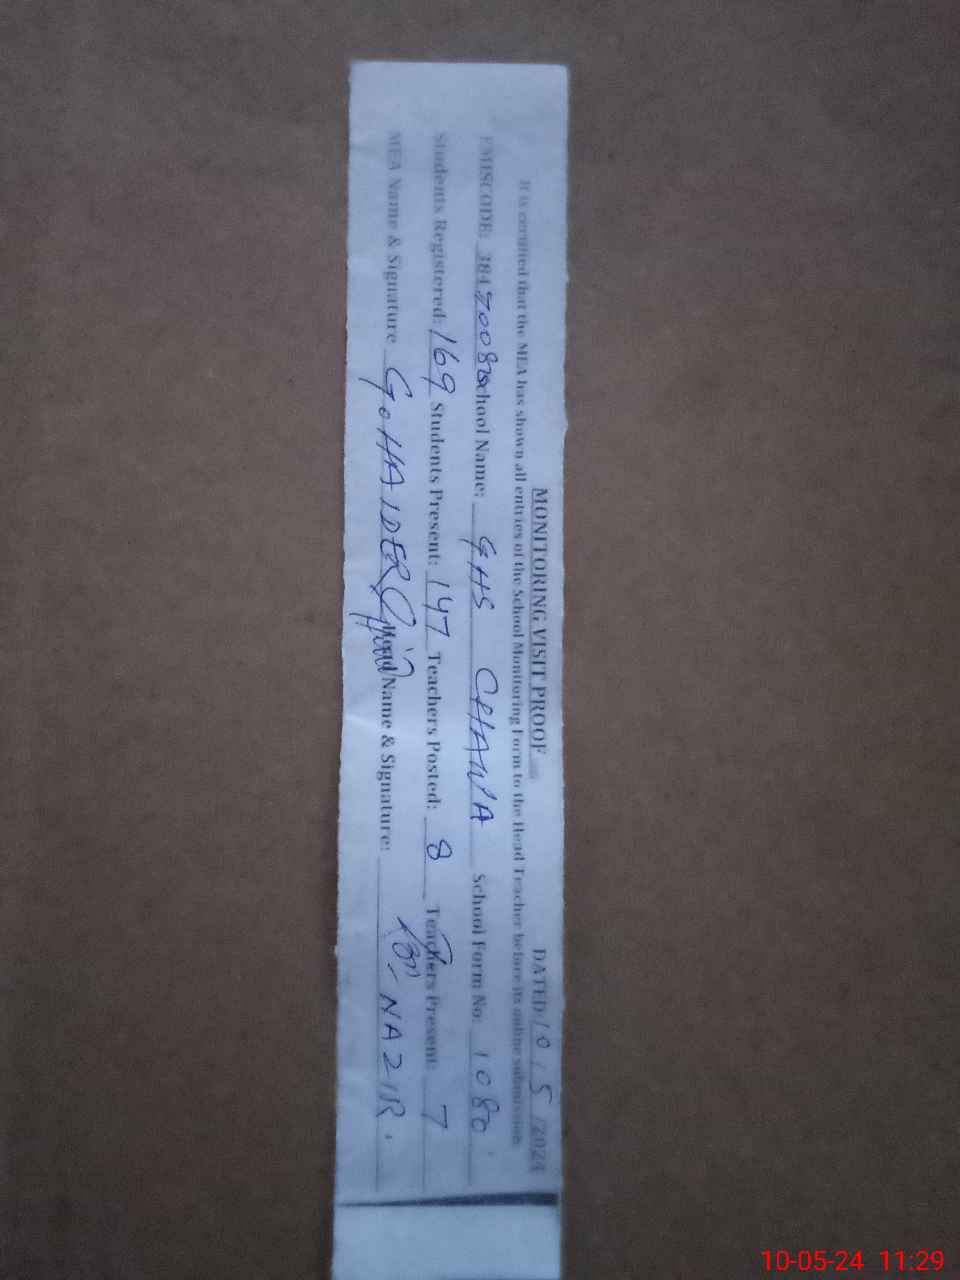 MONITORING VISIT PROOF DATED: 10 / 5 /2024
It is certified that the MEA has shown all entries of the School Monitoring Form to the Head Teacher before its online submission
EMISCODE: School Name: GHS CHAWA School Form No: 1080
Students Registered: 169 Students Present: 147 Teachers Posted: 8 Teachers Present: 7
MEA Name & Signature G. HAIDER Name & Signature: NAZIR.
10-05-24 11:29